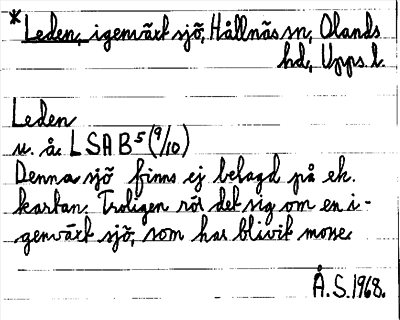 *Leden, igenväxt sjö, Hållnäs sn, Olands
hd, Upps. l.
Leden
u. å. LSA B5 (9/10)
Denna sjö finns ej belagd på ek.
kartan. Troligen rör det sig om en i-
genväxt sjö, som har blivit mosse.
Å.S. 1968.